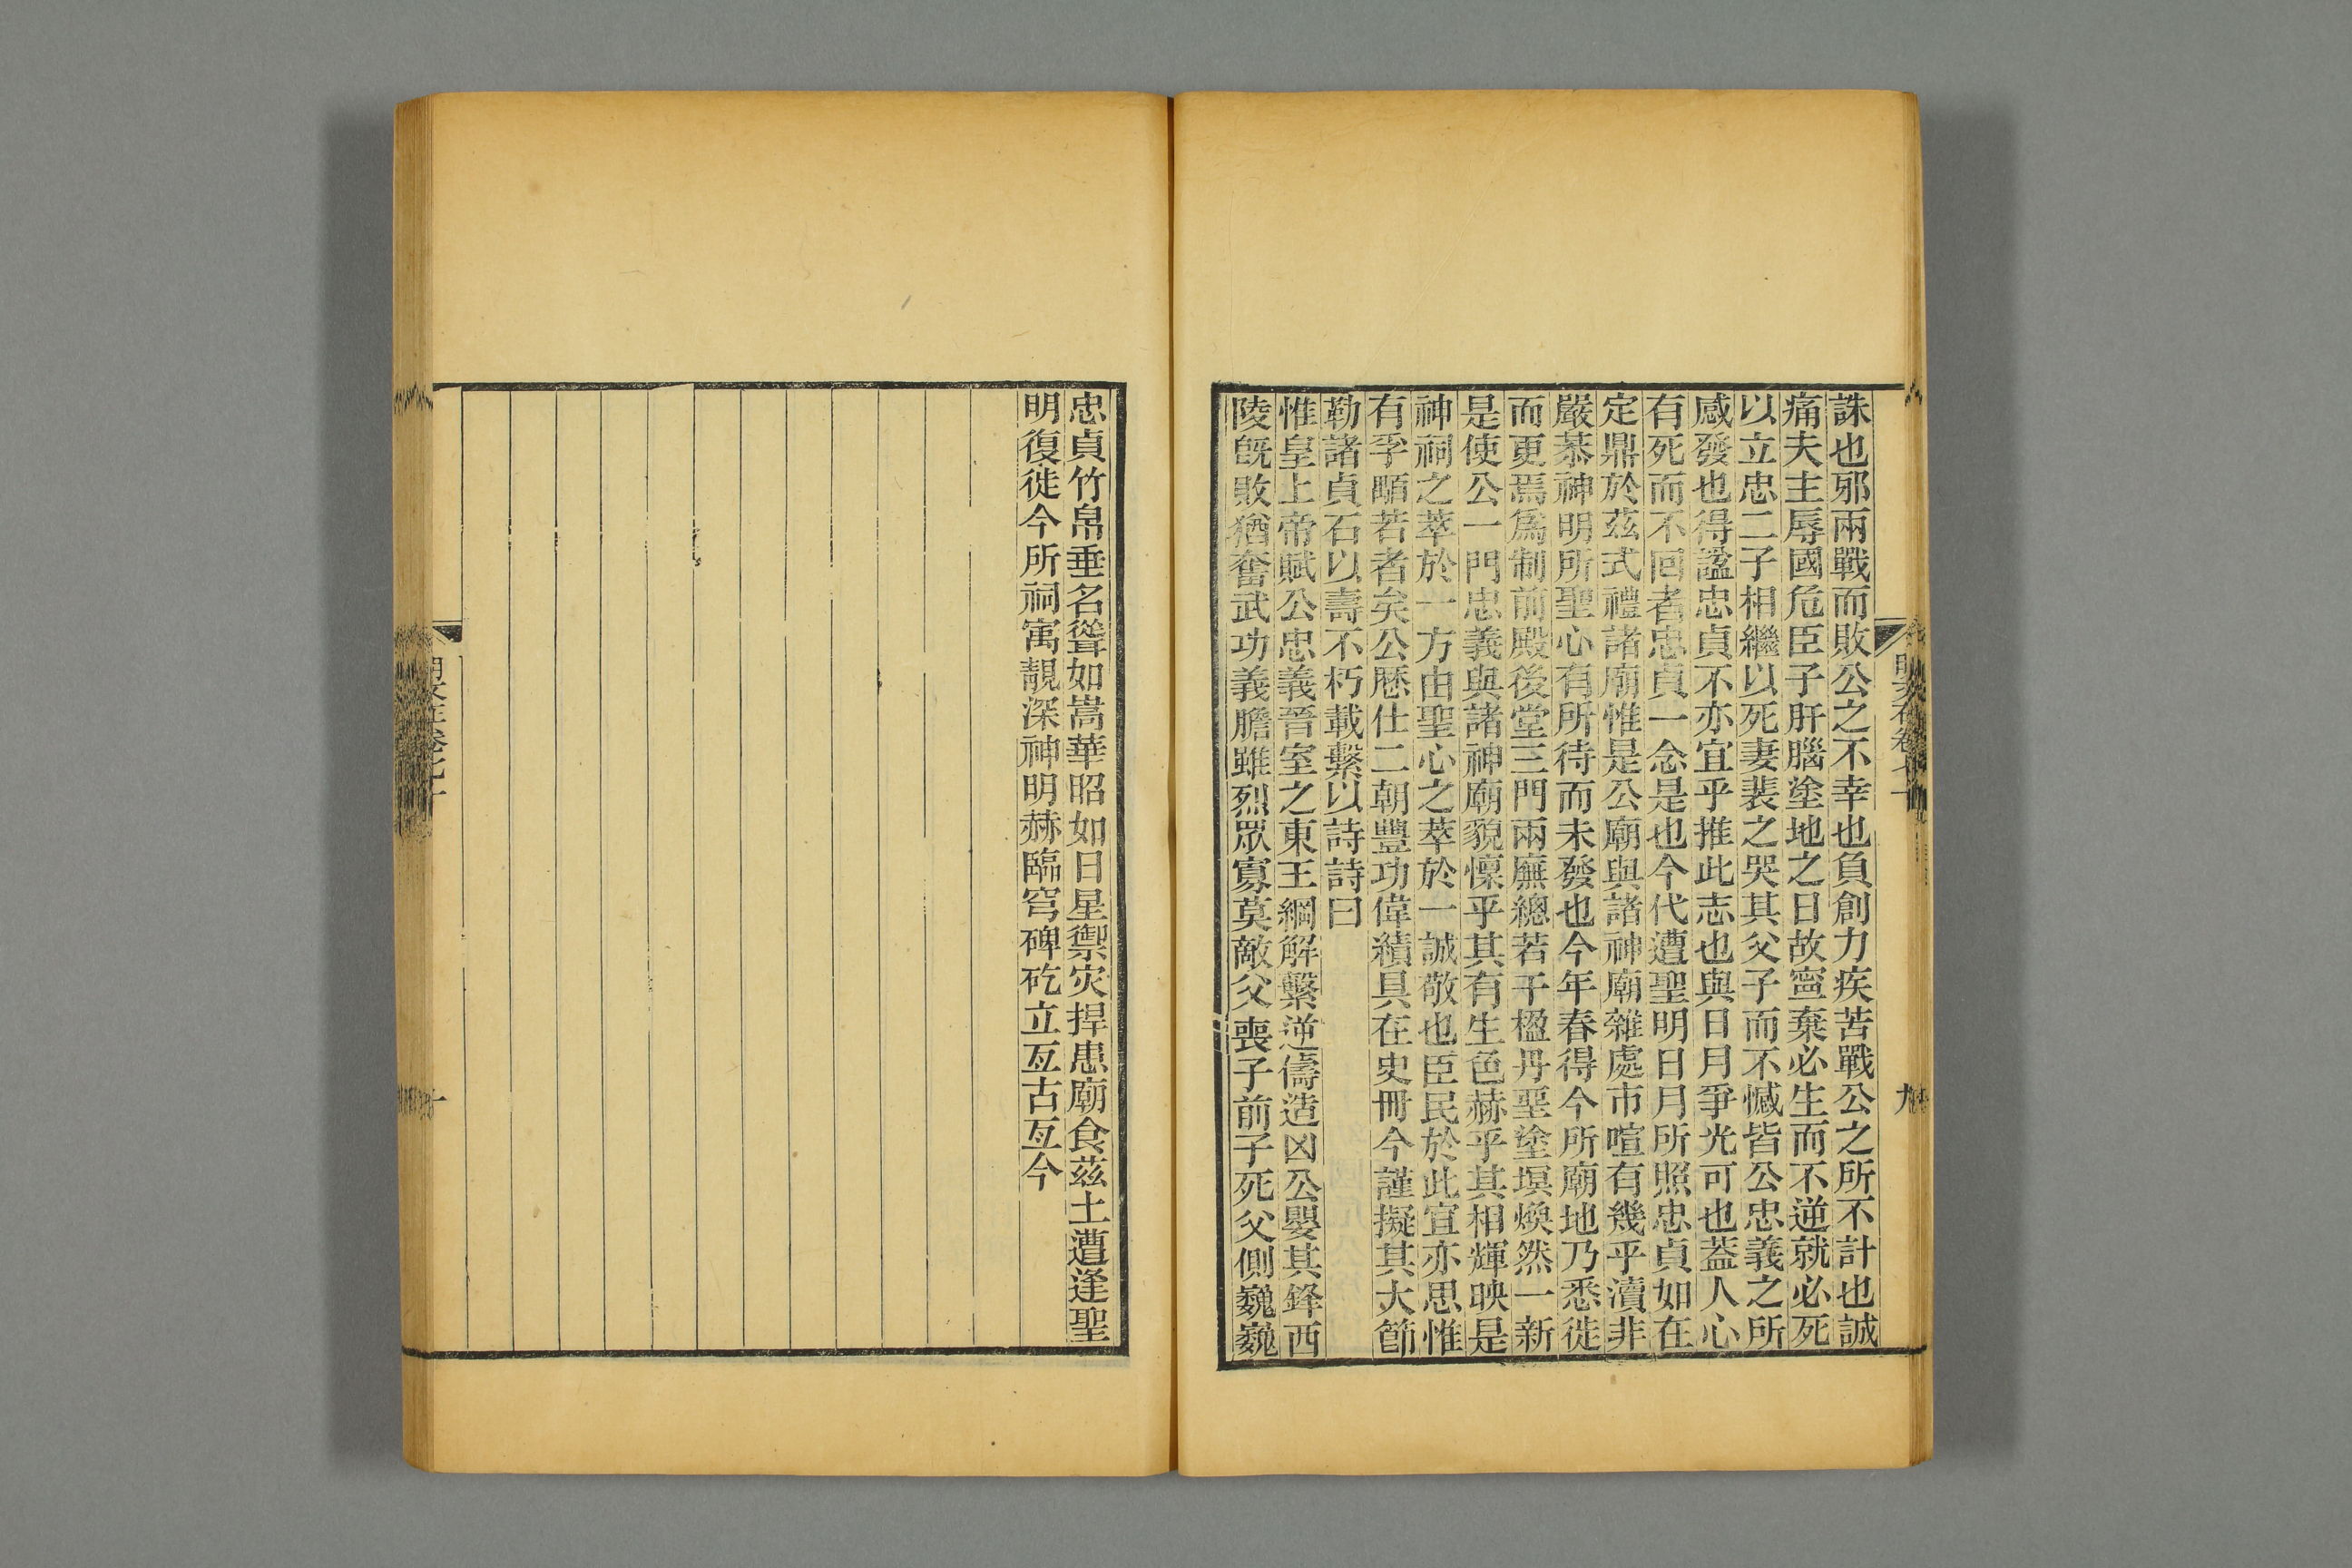 誅也邪兩戰而敗公之不幸也負創力疾苦戰公之所不計也誠
痛夫主辱國危臣子肝腦塗地之日故寧棄必生而不逆就必死
以立忠二子相繼以死妻裴之哭其父子而不憾皆公忠義之所
感發也得謚忠貞不亦宜乎推此志也與日月爭光可也蓋人心
有死而不回者忠貞一念是也今代遭聖明日月所照忠貞如在
定鼎於茲式禮諸廟惟是公廟與諸神廟雜處市喧有幾乎瀆非
嚴恭神明所聖心有所待而未發也今年春得今所廟地乃悉徙
而更焉爲制前殿後堂三門兩廡總若干楹丹堊塗塓煥然一新
是使公一門忠義與諸神廟貌懍乎其有生色赫乎其相輝映是
神祠之萃於一方由聖心之萃於一誠敬也臣民於此宜亦思惟
有孚顒若者矣公歷仕二朝豐功偉績具在史冊今謹擬其大節
勒諸貞石以壽不朽載繫以詩詩曰
惟皇上帝賦公忠義晉室之東王綱解繫逆儔造凶公嬰其鋒西
陵旣敗猶奮武功義膽雖烈眾寡莫敵父喪子前子死父側巍巍
忠貞竹帛垂名聳如嵩華昭如日星禦灾捍患廟食茲土遭逢聖
明復徙今所祠寓靚深神明赫臨穹碑矻立亙古亙今
九